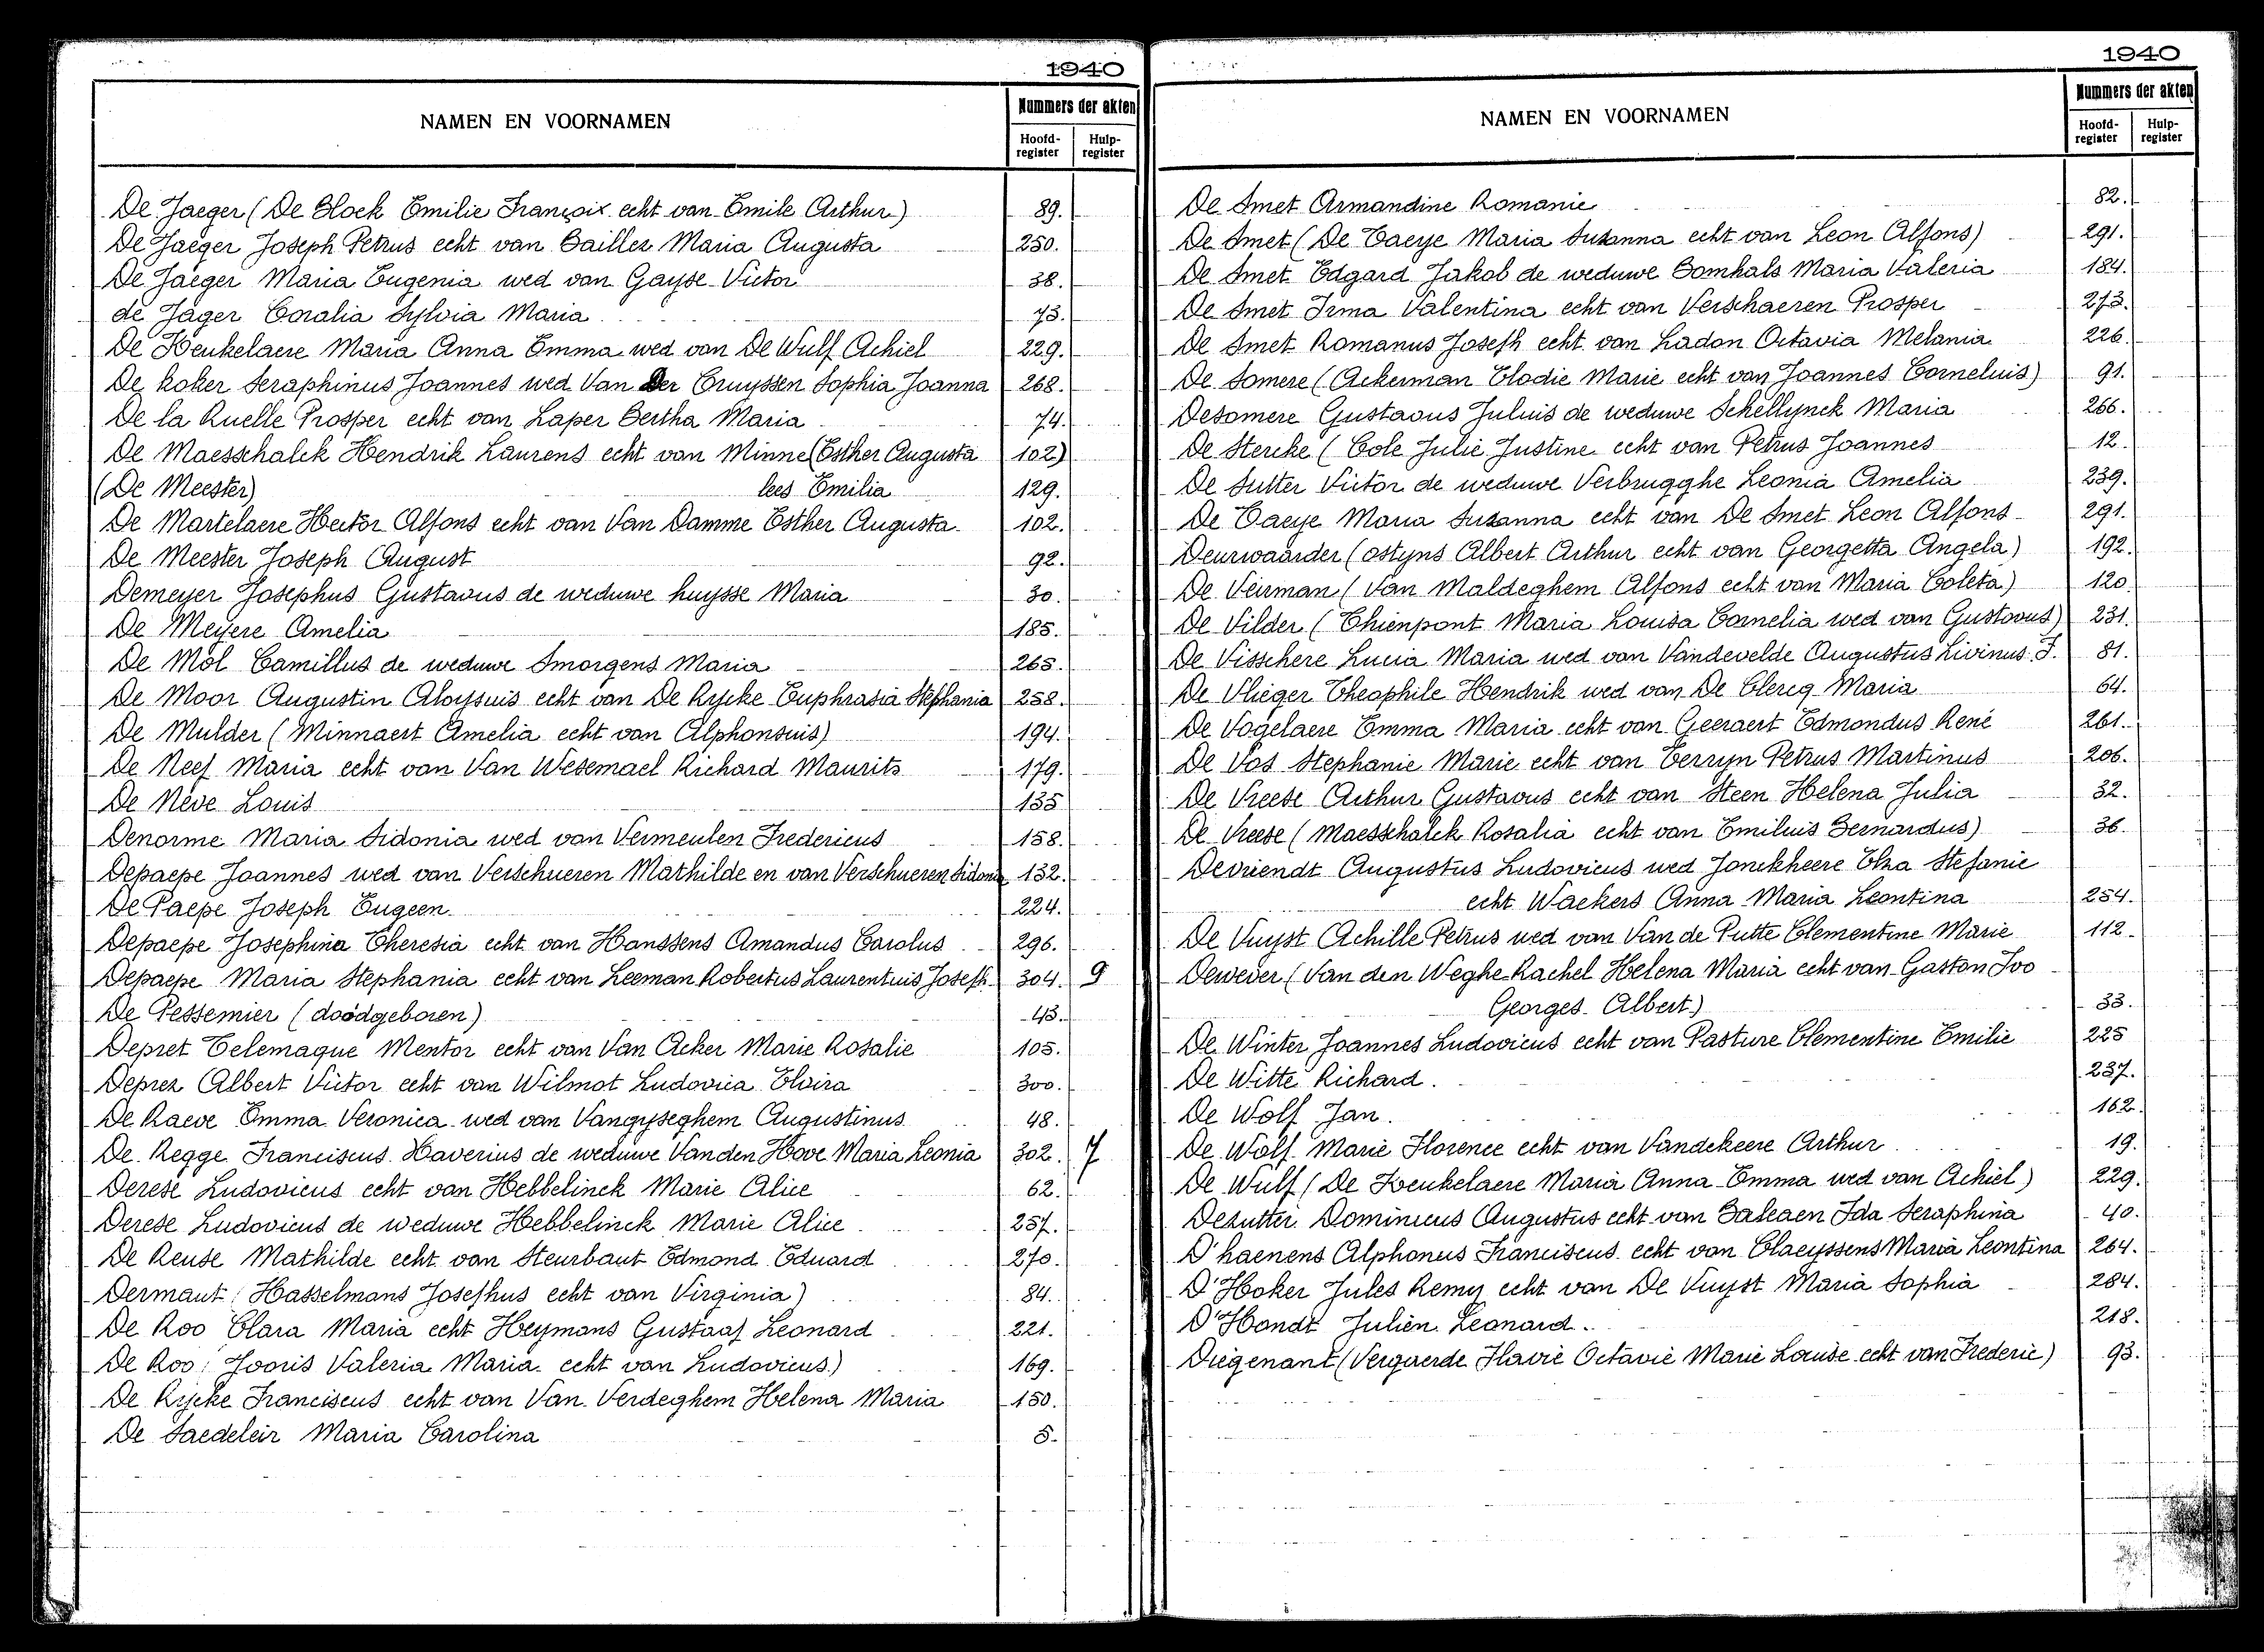 1940
NAMEN EN VOORNAMEN
Nummers der akten
Hoofd-register Hulp-register
De Jaeger (De Block Emilie François echt van Emile Arthur) 89.
De Jaeger Joseph Petrus echt van Baillez Maria Augusta 250.
De Jaeger Maria Eugenia wed van Gayse Victor 38.
de Jager Coralia Sylvia Maria 73.
De Keukelaere Maria Anna Emma wed van De Wulf Achiel 229.
De koker Seraphinus Joannes wed Van Der Cruyssen Sophia Joanna 268.
De la Ruelle Prosper echt van Laper Bertha Maria 74.
De Maesschalck Hendrik Laurens echt van Minne (Esther Augusta 102)
(De Meester) lees Emilia 129.
De Martelaere Hector Alfons echt van Van Damme Esther Augusta 102.
De Meester Joseph August 92.
Demeyer Josephus Gustavus de weduwe huysse Maria 30.
De Meyere Amelia 185.
De Mol Camillus de weduwe Smorgens Maria 265.
De Moor Augustin Aloysuis echt van De Rycke Euphrasia Stephania 258.
De Mulder (Minnaert Amelia echt van Alphonsuis) 194.
De Neef Maria echt van Van Wesemael Richard Maurits 179.
De Nève Louis 135
Denorme Maria Sidonia wed van Vermeulen Fredericus 158.
Depaepe Joannes wed van Verschueren Mathilde en van Verschueren Sidonia 132.
De Paepe Joseph Eugeen 224.
Depaepe Josephina Theresia echt van Hanssens Amandus Carolus 296.
Depaepe Maria Stephania echt van Leeman Robertus Laurentuis Joseph 304. 9
De Pessemier (doodgeboren) 43.
Depret Telemaque Mentor echt van Van Acker Marie Rosalie 105.
Deprez Albert Victor echt van Wilmot Ludovica Elvira 300.
De Raeve Emma Veronica wed van Vangyseghem Augustinus 48.
De Regge Franciscus Xaverius de weduwe Vanden Hove Maria Leonia 302. 7
Derese Ludovicus echt van Hebbelinck Marie Alice 62.
Derese Ludovicus de weduwe Hebbelinck Marie Alice 257.
De Reuse Mathilde echt van Steurbaut Edmond Eduard 270.
Dermaut (Hasselmans Josephus echt van Virginia) 84.
De Roo Clara Maria echt Heymans Gustaaf Leonard 221.
De Roo (Jooris Valeria Maria echt van Ludovicus) 169.
De Rycke Franciscus echt van Van Verdeghem Helena Maria 150.
De Saedeleir Maria Carolina 5.
1940
NAMEN EN VOORNAMEN
Nummers der akten
Hoofd-register Hulp-register
De Smet Armandine Romanie 82.
De Smet (De Taeye Maria Suzanna echt van Leon Alfons) 291.
De Smet Edgard Jakob de weduwe Bomhals Maria Valeria 184.
De Smet Irma Valentina echt van Verschaeren Prosper 273.
De Smet Romanus Joseph echt van Ladon Octavia Melania 226.
De Somere (Ackerman Elodie Marie echt van Joannes Corneluis) 91.
Desomere Gustavus Juluis de weduwe Schellynck Maria 266.
De Stercke (Cole Julie Justine echt van Petrus Joannes 12.
De Sutter Victor de weduwe Verbrugghe Leonia Amelia 239.
De Taeye Maria Suzanna echt van De Smet Leon Alfons 291.
Deurwaarder (ostyns Albert Arthur echt van Georgetta Angela) 192.
De Veirman (Van Maldeghem Alfons echt van Maria Coleta) 120.
De Vilder (Thienpont Maria Louisa Cornelia wed van Gustavus) 231.
De Visschere Lucia Maria wed van Vandevelde Augustus Livinus J. 81.
De Vlieger Theophile Hendrik wed van De Clercq Maria 64.
De Vogelaere Emma Maria echt van Geeraert Edmondus René 261.
De Vos Stephanie Marie echt van Terryn Petrus Martinus 206.
De Vreese Arthur Gustavus echt van Steen Helena Julia 32.
De Vreese (Maesschalck Rosalia echt van Emiluis Bernardus) 36.
Devriendt Augustus Ludovicus wed Jonckheere Elza Stefanie
echt Waekers Anna Maria Leontina 254.
De Vuyst Achille Petrus wed van Van de Putte Clementine Marie 112.
Dewever (Van den Weghe Rachel Helena Maria echt van Gaston Ivo
Georges Albert) 33.
De Winter Joannes Ludovicus echt van Pasture Clementine Emilie 225
De Witte Richard. 237.
De Wolf Jan. 162.
De Wolf Marie Florence echt van Vandekeere Arthur 19.
De Wulf (De Keukelaere Maria Anna Emma wed van Achiel) 229.
Dezutter Dominicus Augustus echt van Balcaen Ida Seraphina 40.
D'haenens Alphonus Franciscus echt van Claeyssens Maria Leontina 264.
D'Hoker Jules Remy echt van De Vuyst Maria Sophia 284.
D'Hondt Julien Leonard. 218.
Diegenant (Vergaerde Flavie Octavie Marie Louise echt van Frederic) 93.